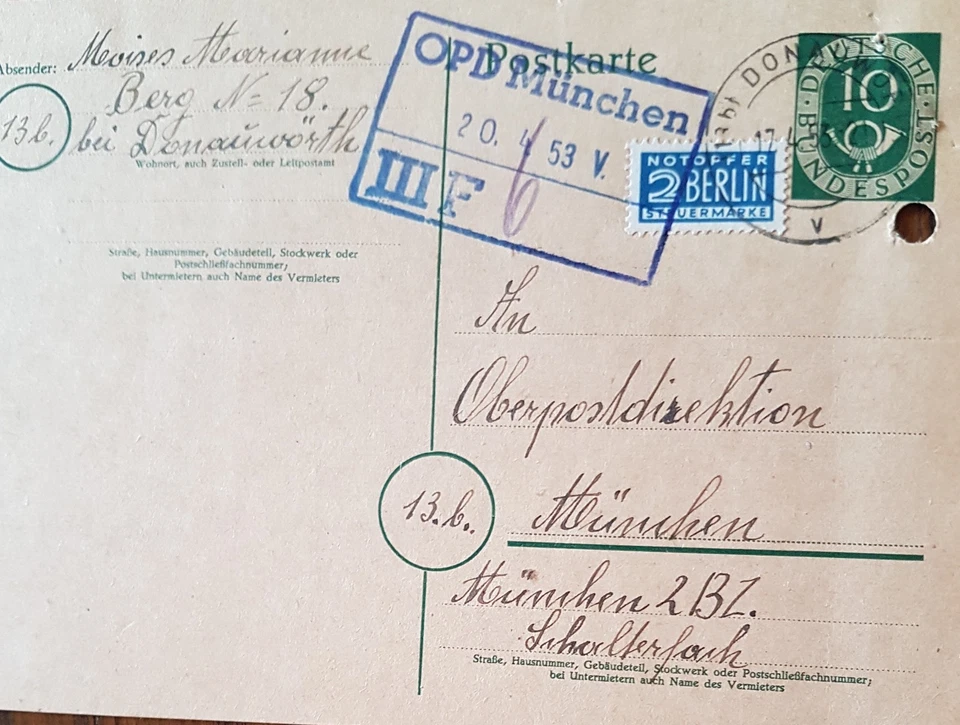 Absender: Moises Marianne
Berg N= 18.
13b. bei Donauwörth
Wohnort, auch Zustell- oder Leitpostamt
Straße, Hausnummer, Gebäudeteil, Stockwerk oder
Postschließfachnummer;
bei Untermietern auch Name des Vermieters
Postkarte
OPD München
20. 4 53 V.
III F
6
NOTOPFER
2 BERLIN
STEUERMARKE
DONAUWÖRTH
17.4.53
V
10
DEUTSCHE BUNDESPOST
An
Oberpostdirektion
13.b. München
München 2 BZ.
Schalterfach
Straße, Hausnummer, Gebäudeteil, Stockwerk oder Postschließfachnummer;
bei Untermietern auch Name des Vermieters